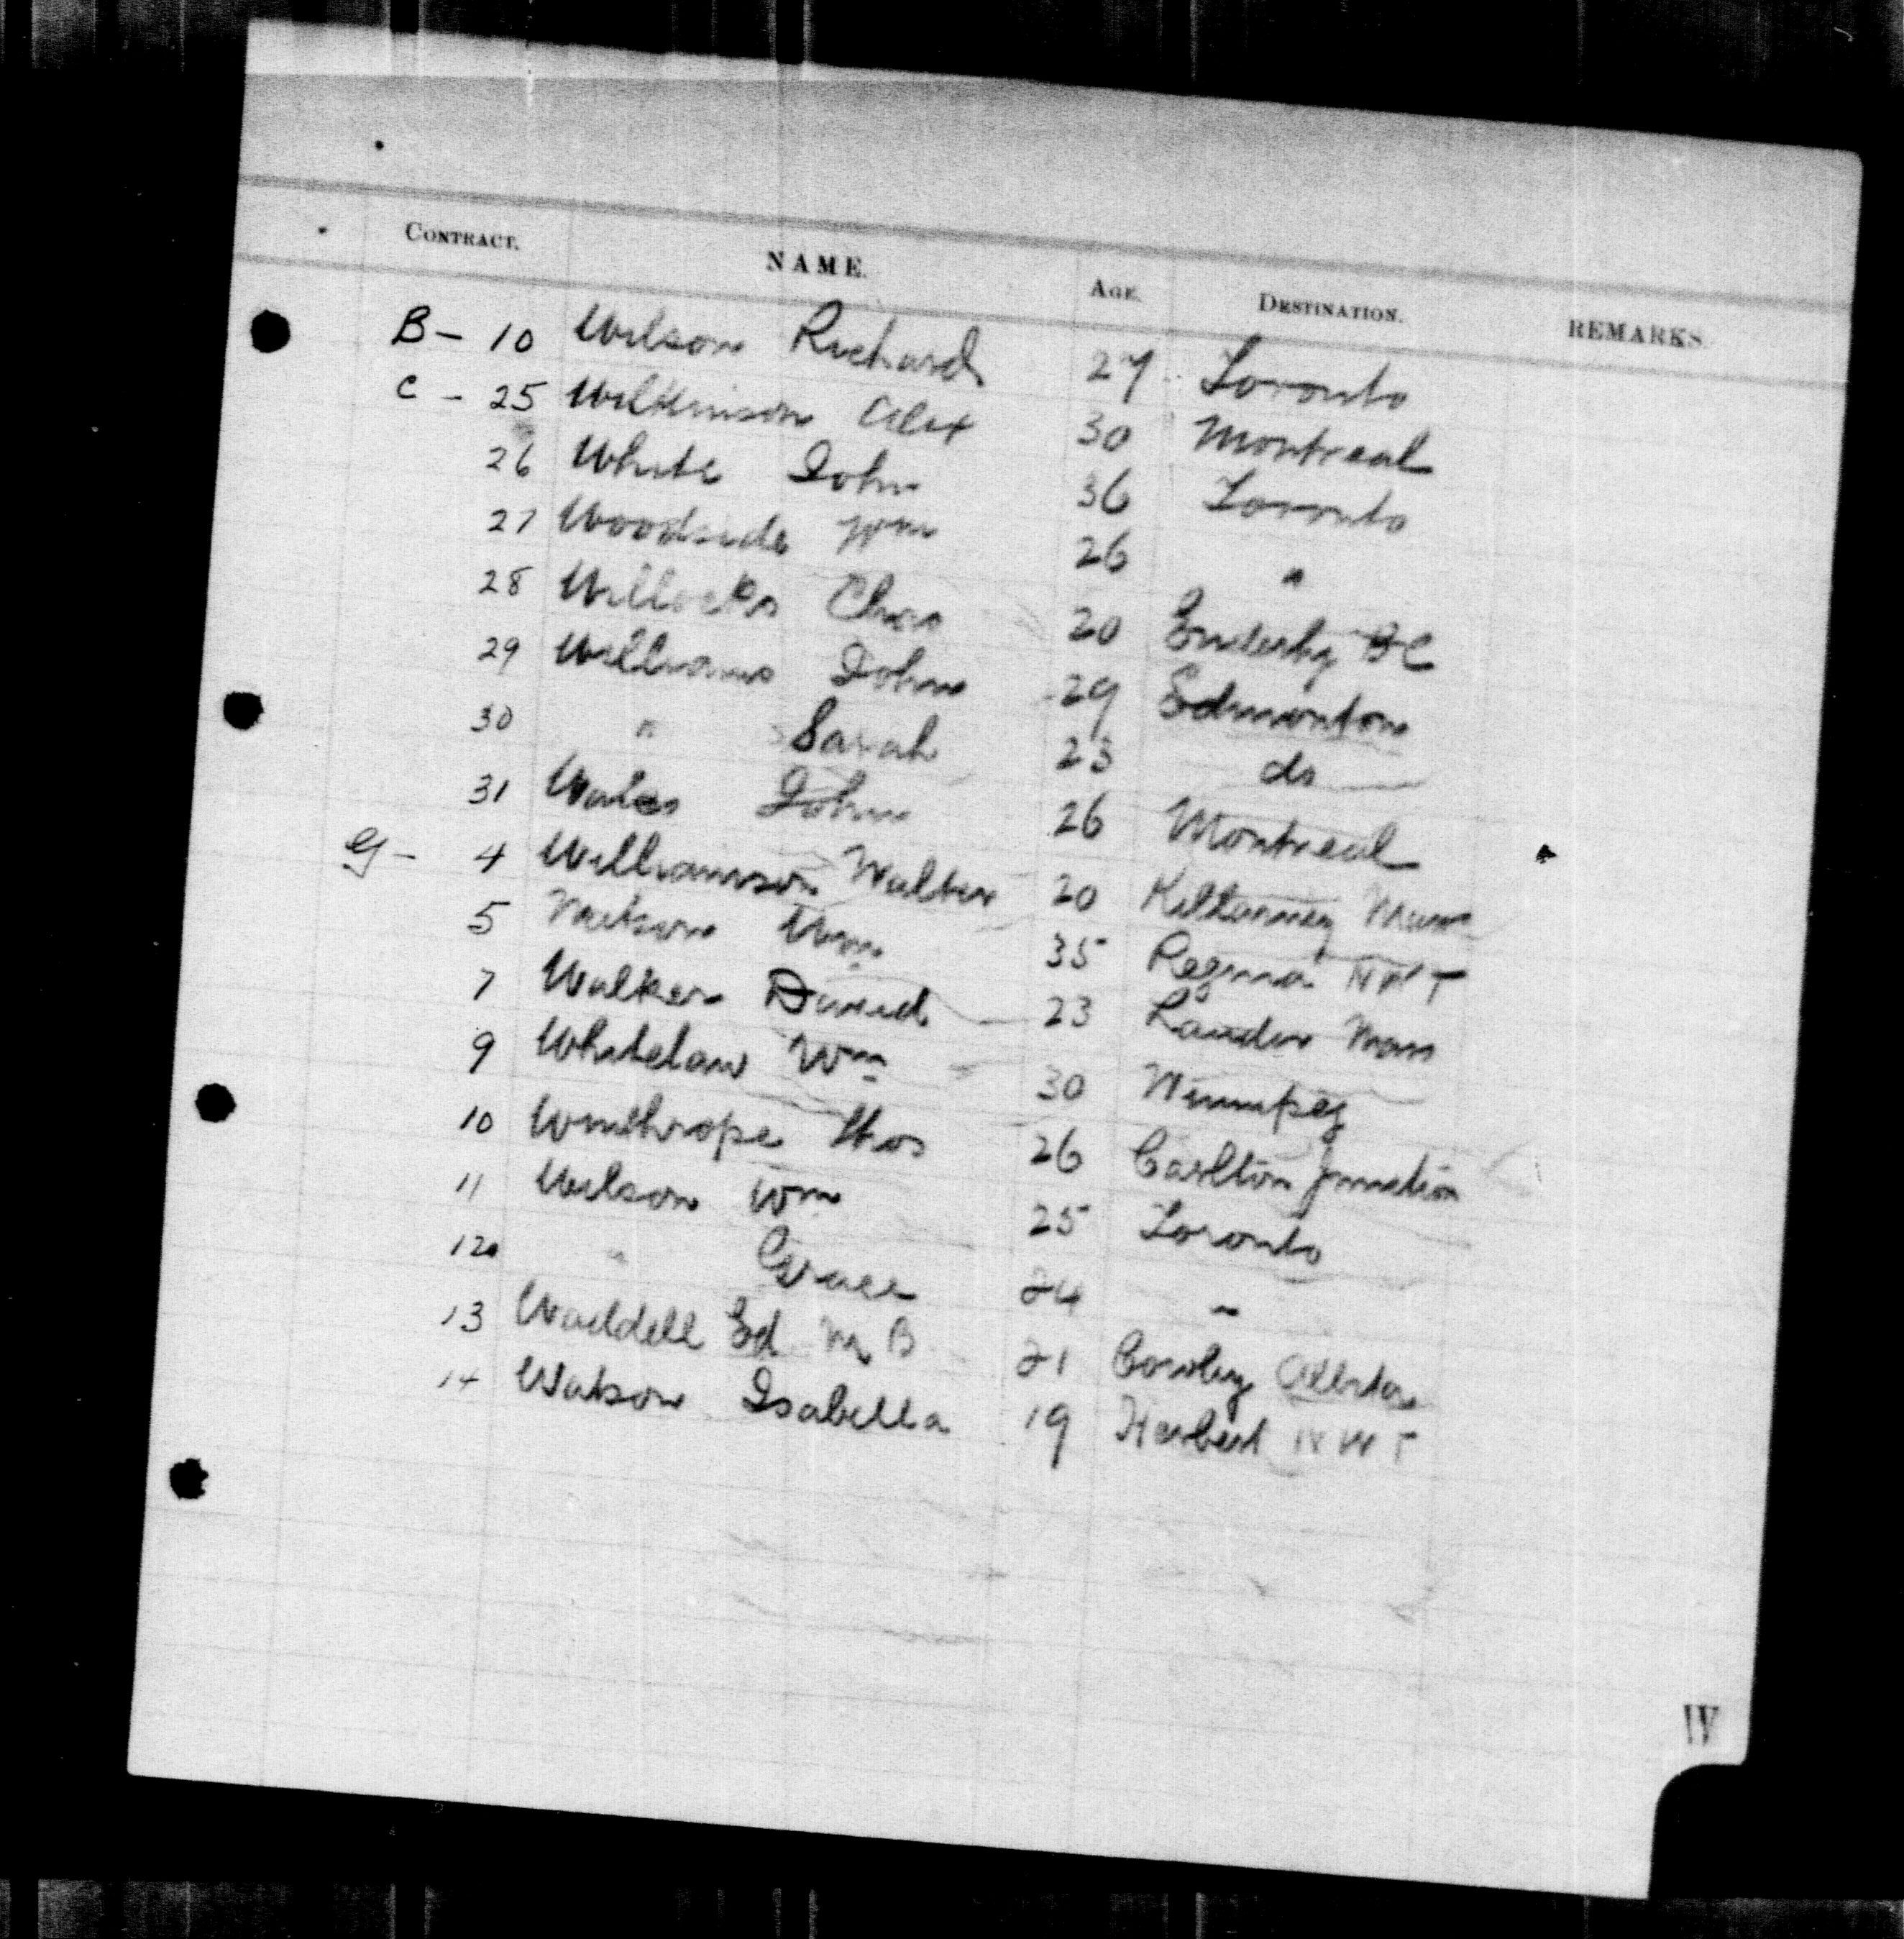 CONTRACT. NAME. AGE. DESTINATION. REMARKS
B - 10 Wilson Richard 27 Toronto
C - 25 Wilkinson Alex 30 Montreal
26 White John 36 Toronto
27 Woodside Wm 26 "
28 Willocks Chas 20 Enderby BC
29 Williams John 29 Edmonton
30 " Sarah 23 do
31 Wales John 26 Montreal
G - 4 Williamson Walter 20 Killarney Man
5 Watson Wm 35 Regina NWT
7 Walker David 23 Lauder Man
9 Whitelaw Wm 30 Winnipeg
10 Winthrope Thos 26 Carlton Junction
11 Wilson Wm 25 Toronto
12 " Grace 24 "
13 Waddell Ed M B 21 Cowley Alberta
14 Watson Isabella 19 Herbert NWT
W